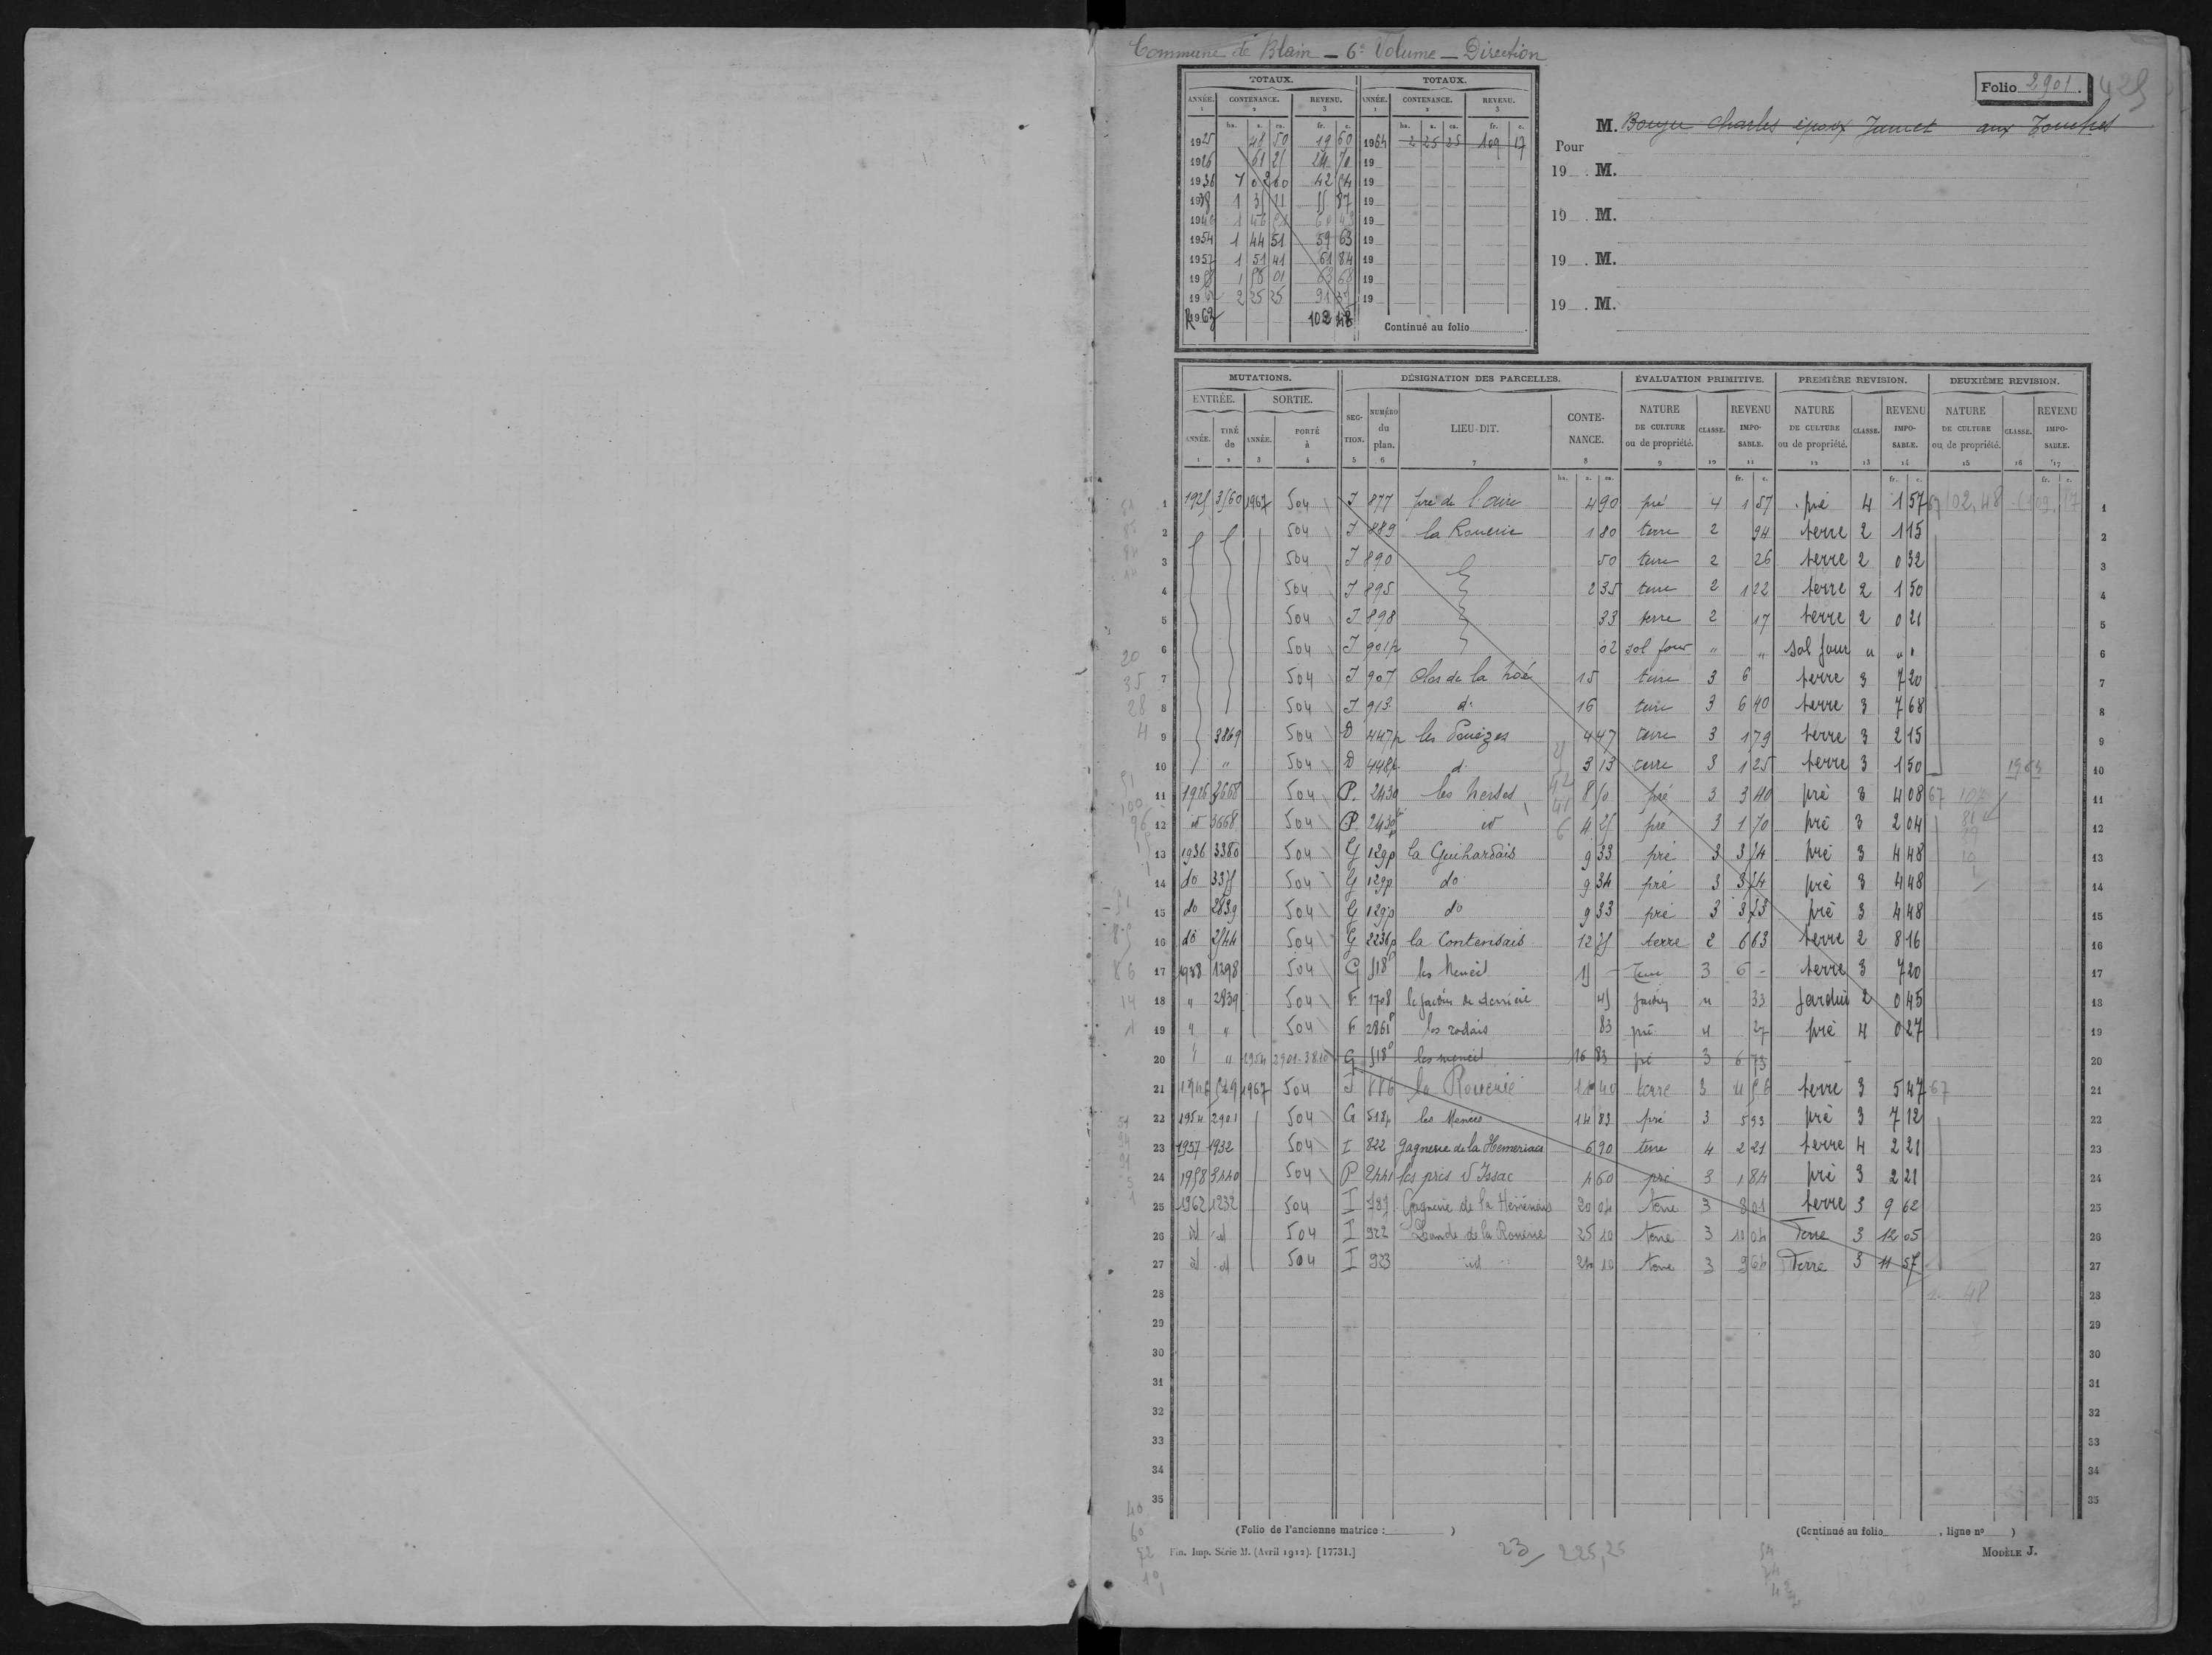 Commune de Blain - 6e Volume - Direction
Folio 2901. 429
TOTAUX. TOTAUX.
ANNÉE. CONTENANCE. REVENU. ANNÉE. CONTENANCE. REVENU.
1 2 3 1 2 3
ha. a. ca. fr. c. ha. a. ca. fr. c.
1925 48 50 19 60 1964 2 25 25 109 17
1926 61 25 24 70 19
1936 1 02 00 42 54 19
1938 1 35 11 55 87 19
1946 1 46 51 60 43 19
1954 1 44 51 59 63 19
1957 1 51 41 61 84 19
1958 1 56 01 63 68 19
1962 2 25 25 91 37 19
R1963 102 48
Continué au folio
Pour
M. Bouyer Charles époux Jamet aux Touches
19 . M.
19 . M.
19 . M.
19 . M.
MUTATIONS. DÉSIGNATION DES PARCELLES. ÉVALUATION PRIMITIVE. PREMIÈRE REVISION. DEUXIÈME REVISION.
ENTRÉE. SORTIE. SECTION. NUMÉRO du plan. LIEU-DIT. CONTENANCE. NATURE DE CULTURE ou de propriété. CLASSE. REVENU IMPOSABLE. NATURE DE CULTURE ou de propriété. CLASSE. REVENU IMPOSABLE. NATURE DE CULTURE ou de propriété. CLASSE. REVENU IMPOSABLE.
ANNÉE. TIRÉ de ANNÉE. PORTÉ à
1 2 3 4 5 6 7 8 9 10 11 12 13 14 15 16 17
ha. a. ca. fr. c. fr. c. fr. c.
1 1925 3560 1967 504 I 877 pré de l'aire 4 90 pré 4 1 57 pré 4 1 57 67 102,48 109,17 1
2 504 I 889 la Rouerie 1 80 terre 2 94 terre 2 1 15 2
3 504 I 890 50 terre 2 26 terre 2 0 32 3
4 504 I 895 2 35 terre 2 1 22 terre 2 1 50 4
5 504 I 898 33 terre 2 17 terre 2 0 21 5
6 504 I 901p 02 sol four " " sol four " " " 6
7 504 I 907 Clos de la hoé 15 terre 3 6 terre 3 7 20 7
8 504 I 913 do 16 terre 3 6 40 terre 3 7 68 8
9 3869 504 D 447p les Douèzes 4 47 terre 3 1 79 terre 3 2 15 9
10 " 504 D 448p do 3 13 terre 3 1 25 terre 3 1 50 1963 10
11 1926 3668 504 P. 2430 les herses 8 50 pré 3 3 40 pré 3 4 08 67 11
12 id 3668 504 P 2430p id 4 25 pré 3 1 70 pré 3 2 04 12
13 1936 3380 504 G 129p la Guihardais 9 33 pré 3 3 74 pré 3 4 48 13
14 do 3375 504 G 129p do 9 34 pré 3 3 74 pré 3 4 48 14
15 do 2839 504 G 129p do 9 33 pré 3 3 73 pré 3 4 48 15
16 do 2544 504 G 2236p la Contensais 12 75 terre 2 6 63 terre 2 8 16 16
17 1938 1298 504 G 518p les Meneil 15 - Terre 3 6 - terre 3 7 20 17
18 " 2839 504 F 1708 le jardin de derrière 45 jardin " 33 jardin 2 0 45 18
19 " " 504 F 2861p les rodais 83 pré 4 27 pré 4 0 27 19
20 " " 1954 2901-3810 G 518p les meneil 16 83 pré 3 6 73 20
21 1946 549 1967 504 I 886 la Rouerie 11 40 terre 3 4 56 terre 3 5 47 67 21
22 1954 2901 504 G 518p les Menées 14 83 pré 3 5 93 pré 3 7 12 22
23 1957 1932 504 I 822 Gagnerie de la Hemeriais 6 90 terre 4 2 21 terre 4 2 21 23
24 1958 3440 504 P 2441 les prés d'Issac 4 60 pré 3 1 84 pré 3 2 21 24
25 1962 1232 504 I 787 Gagnerie de la Hémeriais 20 04 terre 3 8 01 terre 3 9 62 25
26 id id 504 I 922 Lande de la Rouerie 25 10 terre 3 10 04 Terre 3 12 05 26
27 id id 504 I 923 id 24 10 terre 3 9 64 Terre 3 11 57 27
28 48 28
29 29
30 30
31 31
32 32
33 33
34 34
35 35
(Folio de l'ancienne matrice : ) (Continué au folio , ligne no )
Fin. Imp. Série M. (Avril 1912). [17731.] 23 225,25 MODÈLE J.